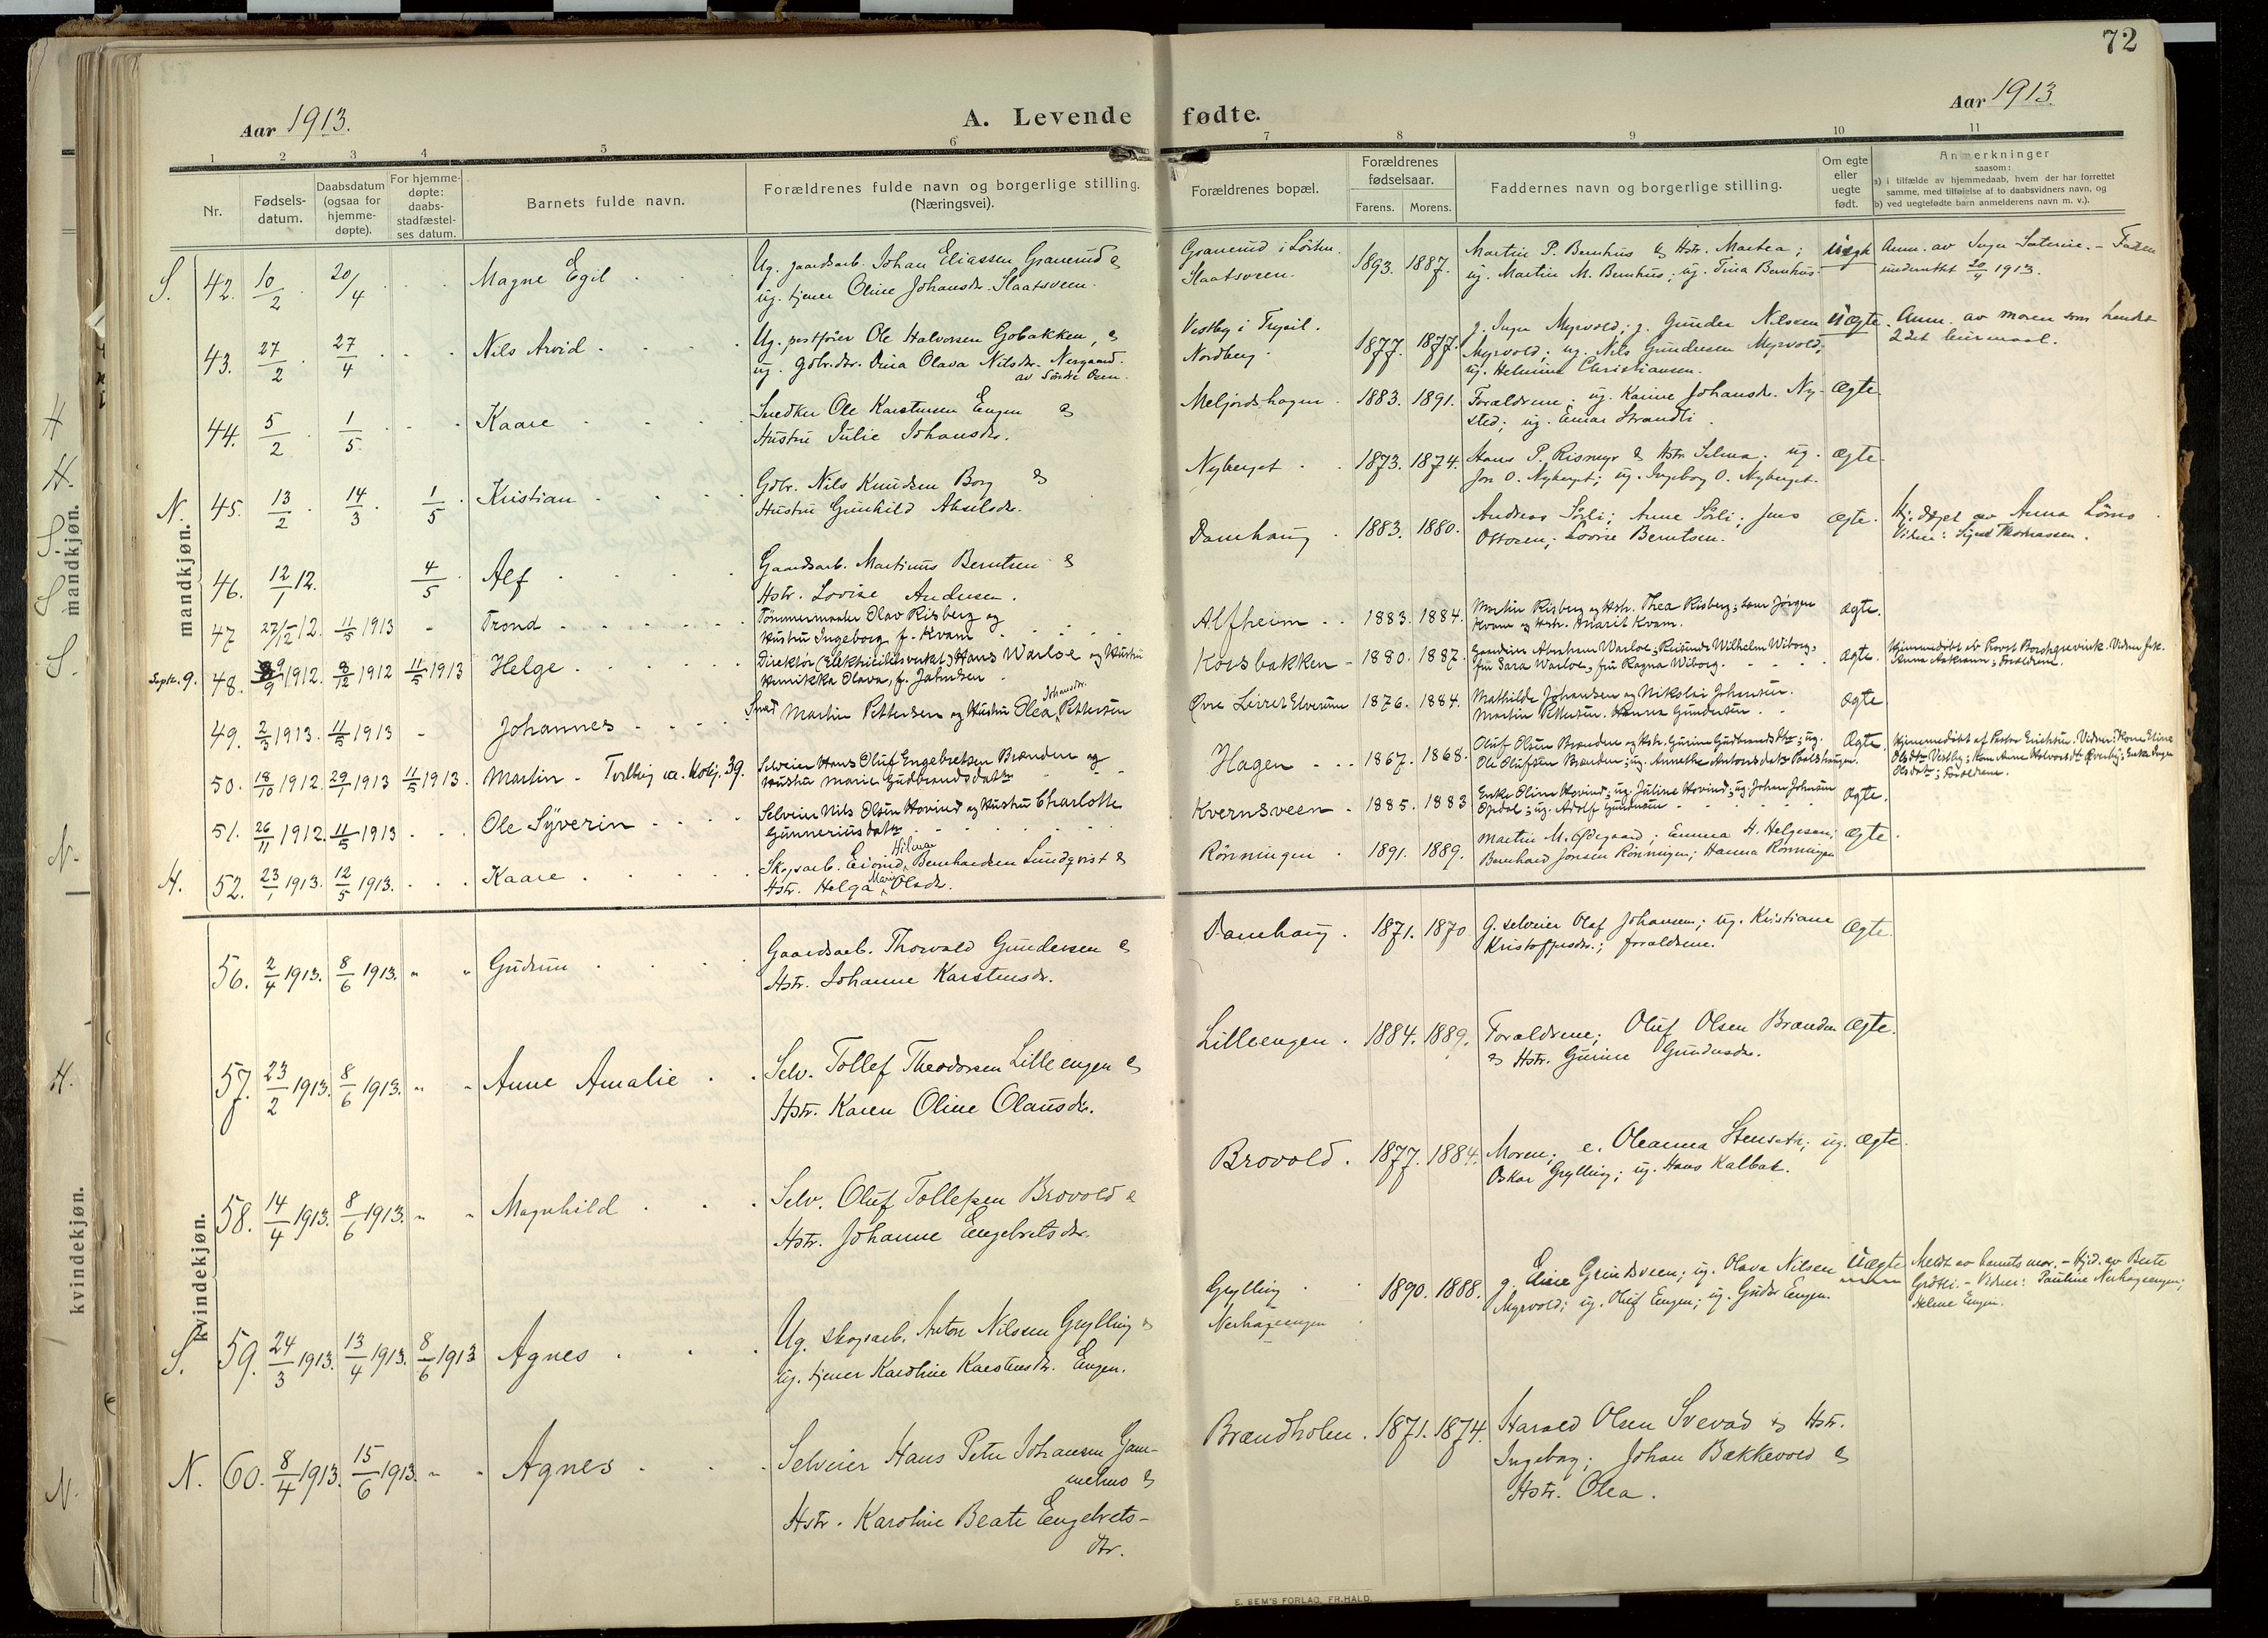 72
Aar 1913.
A. Levende fødte.
Aar 1913.
1 2 3 4 5 6 7 8 9 10 11
Nr.
Fødsels-
datum.
Daabsdatum
(ogsaa for
hjemme-
døpte).
For hjemme-
døpte:
daabs-
stadfæstel-
ses datum.
Barnets fulde navn.
Forældrenes fulde navn og borgerlige stilling.
(Næringsvei).
Forældrenes bopæl.
Forældrenes
fødselsaar.
Farens. Morens.
Faddernes navn og borgerlige stilling.
Om egte
eller
uegte
født.
Anmerkninger
saasom:
a) i tilfælde av hjemmedaab, hvem der har forrettet
samme, med tilføielse af to daabsvidners navn, og
b) ved uegtefødte barn anmelderens navn m. v.).
mandkjøn.
S. 42. 10/2 20/4 Magne Egil
Ug. gaardsarb. Johan Eliassen Granerud &
ug. tjener Oline Johansdr. Slaatsveen.
Granerud i Løiten.
Slaatsveen.
1893. 1887.
Martin P. Bernhus & Hstr. Martea;
ug. Martin M. Bernhus; ug. Tina Bernhus.
Uegte
Anm. av Inger Saterine. - Faderen
underrettet 20/4 1913.
43. 27/2 27/4 Nils Arvid
Ug. postfører Ole Halvorsen Gobakken, &
ug. gdbr.dtr. Dina Olava Nilsdr. Nergaard.
av Søndre Osen.
Vestby i Trysil.
Nordberg.
1877. 1877.
g. Inger Myrvold; g. Gunder Nilssen
Myrvold; ug. Nils Gundersen Myrvold;
ug. Helmine Christiansen.
Uegte.
Anm. av moren som hendes
2det leiermaal.
44. 5/2 1/5 Kaare
Snedker Ole Karstensen Engen &
Hustru Julie Johansdr.
Meljordshagen
1883. 1891.
Forældrene; ug. Karine Johansdr. Ny-
sted; ug. Einar Strandli.
Ægte.
N. 45. 13/2 14/3 1/5 Kristian
Gdbr. Nils Knudsen Borg &
Hustru Gunhild Akselsdr.
Nyberget
1873. 1874.
Hans P. Rismyr & Hstr Selma. ug.
Jon O. Nyberget; ug. Ingeborg O. Nyberget.
Ægte.
46. 12/1 12. 4/5 Alf
Gaardsarb. Martinus Berntsen &
Hstr. Lovise Andersen.
Damhaug
1883. 1880.
Andreas Sørli; Anne Sørli; Jens
Ottosen; Lovise Berntsen.
Ægte.
Hj. døpt av Anna Lømo.
Vidner: Sigrid Thomassen.
47 27/12 12. 11/5 1913 - Trond
Tømmermaaler Olav Risberg og
Hustru Ingeborg f. Kvam
Alfheim
1883. 1884.
Martin Risberg og Hstr. Thea Risberg; Jørgen
Kvam og Hstr. Marit Kvam.
Ægte.
Septr. 9. 48. 9/9 1912. 8/12 1912 11/5 1913 Helge
Direktør (Elektricitetsverket) Hans Warloe og Hustru
Henrikka Olava, f. Jahnsen
Korsbakken
1880. 1887.
Grandios Abraham Warloe, Wilhelm Wiborg,
fru Sara Warloe, fru Ragna Wiborg.
Ægte.
Hjemmedøbt av Provst Borchgrevink. Vidner
Forældrene.
49. 2/3 1913. 11/5 1913 - Johannes
Smed Martin Pettersen og Hustru Olea Johansdr. Pettersen
Øvre Leiret Elverum
1876. 1884.
Mathilde Johansen og Nikolai Johansen.
Martin Pettersen. Hanna Gundersen
Ægte
50. 18/10 1912. 29/1 1913 11/5 1913. Martin - Tvilling ca. Kvkj. 39.
Selveier Hans Oluf Engebretsen Brænden og
Hustru Marie Gudbrandsdatter
Hagen
1867. 1868.
Oluf Olsen Brænden og Hstr. Gurine Gudbrandsdtr; ug.
Ole Olufsen Brænden; ug. Annette Antonsdatr.
Ægte.
Hjemmedøbt af Pastor Erichsen. Vidner: Kone Eline
Olsdtr. Vestby; Kone Anne Halvorsdtr Øverby; Enke Inger
Olsdtr; Forældrene.
51. 26/11 1912. 11/5 1913 Ole Syverin
Selveier Nils Olsen Hovind og Hustru Charlotte
Gunneriusdatter
Kvernsveen
1885. 1883
Enke Oline Hovind; ug. Juline Hovind; ug. Johan Johnsen
Opdal; ug. Adolf Gundersen
Ægte.
H. 52. 23/1 1913. 12/5 1913. Kaare
Skogsarb. Eivind Hilmar Bernhardsen Lundqvist &
Hstr. Helga Marie Olsdr.
Rønningen
1891. 1889.
Martin M. Ødegaard; Emma H. Helgesen;
Bernhard Jonsen Rønningen; Hanna Rønningen
Ægte
kvindekjøn.
56. 2/4 1913. 8/6 1913. " " Gudrun
Gaardsarb. Thorvald Gundersen &
Hstr. Johanne Karstensdr.
Damhaug.
1871. 1870
G. selveier Olaf Johansen; ug. Kristiane
Kristoffersdr.; forældrene.
Ægte.
57. 23/2 1913. 8/6 1913. " " Anne Amalie
Selv. Tollef Theodorsen Lilleengen &
Hstr. Karen Oline Olausdr.
Lilleengen.
1884. 1889.
Forældrene; Oluf Olsen Brænden
& Hstr. Gurine Gundersdr.
Ægte.
58. 14/4 1913. 8/6 1913. " " Magnhild
Selv. Oluf Tollefsen Brovold &
Hstr. Johanne Engebretsdr.
Brovold.
1877. 1884.
Moren; e. Oleanna Stenseth; ug.
Oskar Grylling; ug. Hans Kalbak.
Ægte.
S. 59. 24/3 1913. 13/4 1913. 8/6 1913 Agnes
Ug. skogsarb. Anton Nilssen Grylling &
ug. tjener Karoline Karstensdr. Engen.
Grylling
Nerhagengen
1890. 1888.
g. Eline Grindsveen; ug. Olava Nilsen
Myrvold; ug. Oluf Engen; ug. Gudr Engen.
Uegte
Meldt av barnets mor. - Hj.d. av Berte
Grøtli. - Vidner: Pauline Nerhagengen;
Helene Engen.
N. 60. 8/4 1913. 15/6 1913. " " Agnes
Selveier Hans Peter Johansen Gam-
melmo &
Hstr. Karoline Beate Engebrets-
dtr.
Brændholen.
1871. 1874.
Harald Olsen Svevad & Hstr.
Ingeborg; Johan Bakkevold &
Hstr. Olea.
E. SEM'S FORLAG, FR.HALD.
H
H.
S.
S
S.
N.
H.
N.
mandkjøn.
kvindekjøn.